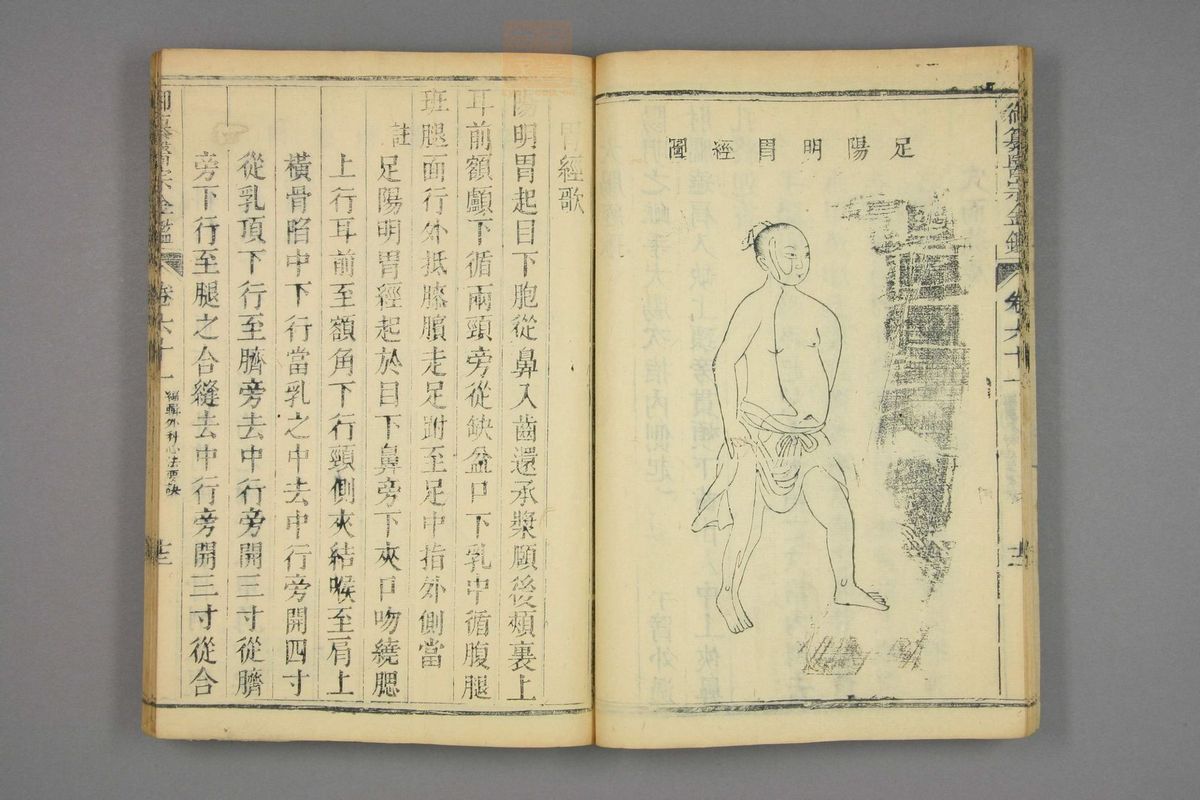 御纂醫宗金鑑
卷六十一
足陽明胃經圖
胃經歌
陽明胃起目下胞從鼻入齒還承漿頤後頰裏上
耳前額顱下循兩頸旁從缺盆口下乳中循腹腿
班腿面行外抵膝臏走足跗至足中指外側當
註
足陽明胃經起於目下鼻旁下夾口吻繞腮
上行耳前至額角下行頸側夾結喉至肩上
橫骨陷中下行當乳之中去中行旁開四寸
從乳頂下行至臍旁去中行旁開三寸從臍
旁下行至腿之合縫去中行旁開三寸從合
御纂醫宗金鑑
卷六十一
編輯外科心法要訣